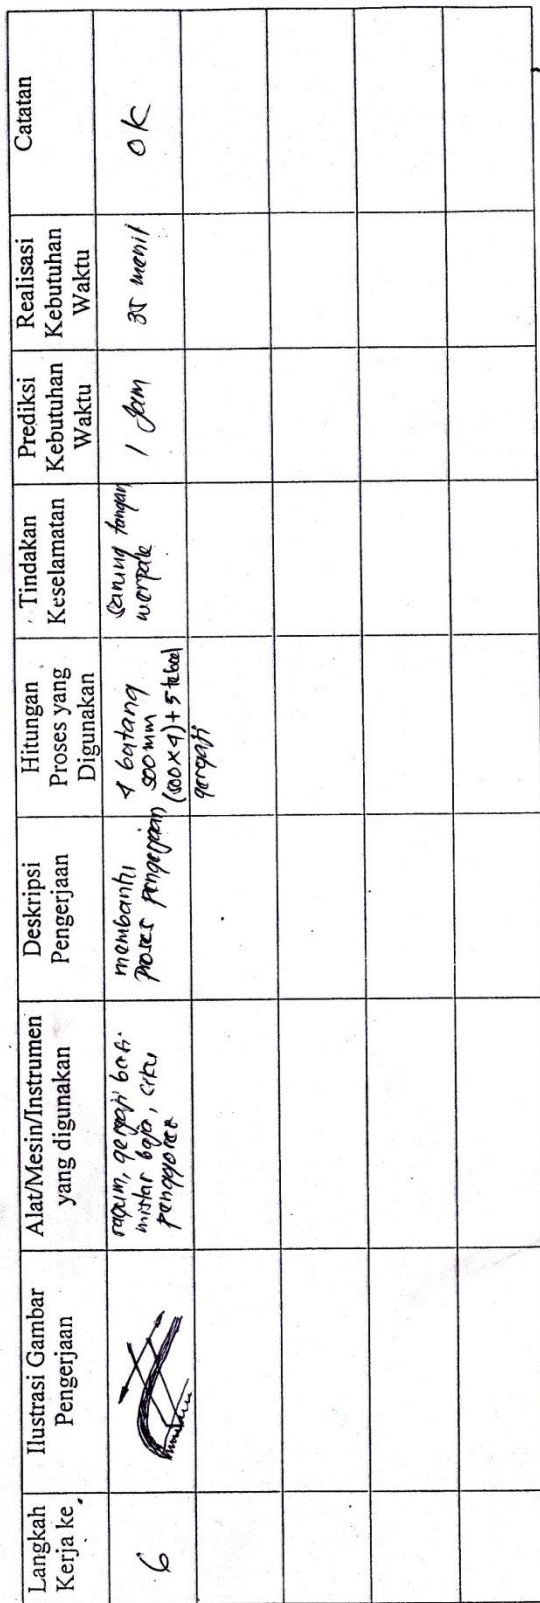 Langkah
Kerja ke
Ilustrasi Gambar
Pengerjaan
Alat/Mesin/Instrumen
yang digunakan
Deskripsi
Pengerjaan
Hitungan
Proses yang
Digunakan
Tindakan
Keselamatan
Prediksi
Kebutuhan
Waktu
Realisasi
Kebutuhan
Waktu
Catatan
6
ragum, gergaji besi
mistar baja, siku
penggores
membantu
proses pengerjaan
4 batang
500 mm
(500 x 4) + 5 tebal
gergaji
sarung tangan
werpak
1 jam
35 menit
OK